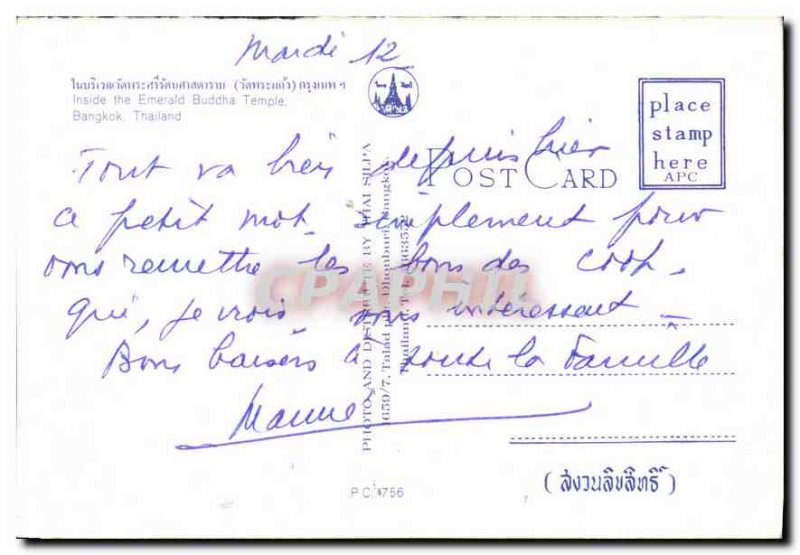 Mardi 12
ในบริเวณวัดพระศรีรัตนศาสดาราม (วัดพระแก้ว) กรุงเทพฯ
Inside the Emerald Buddha Temple,
Bangkok, Thailand
place
stamp
here
APC
POST CARD
Tout va bien depuis hier
a petit mot simplement pour
vous remettre les bons des coop.
qui, je crois, vous intéressent _
Bons baisers à toute la Famille
PHOTOS AND DISTRIBUTE BY THAI SILPA
1659/7, Talad Dhonburi, Bangkok,
Thailand.
CPAPHIL
P.C. 4756
(สงวนลิขสิทธิ์)